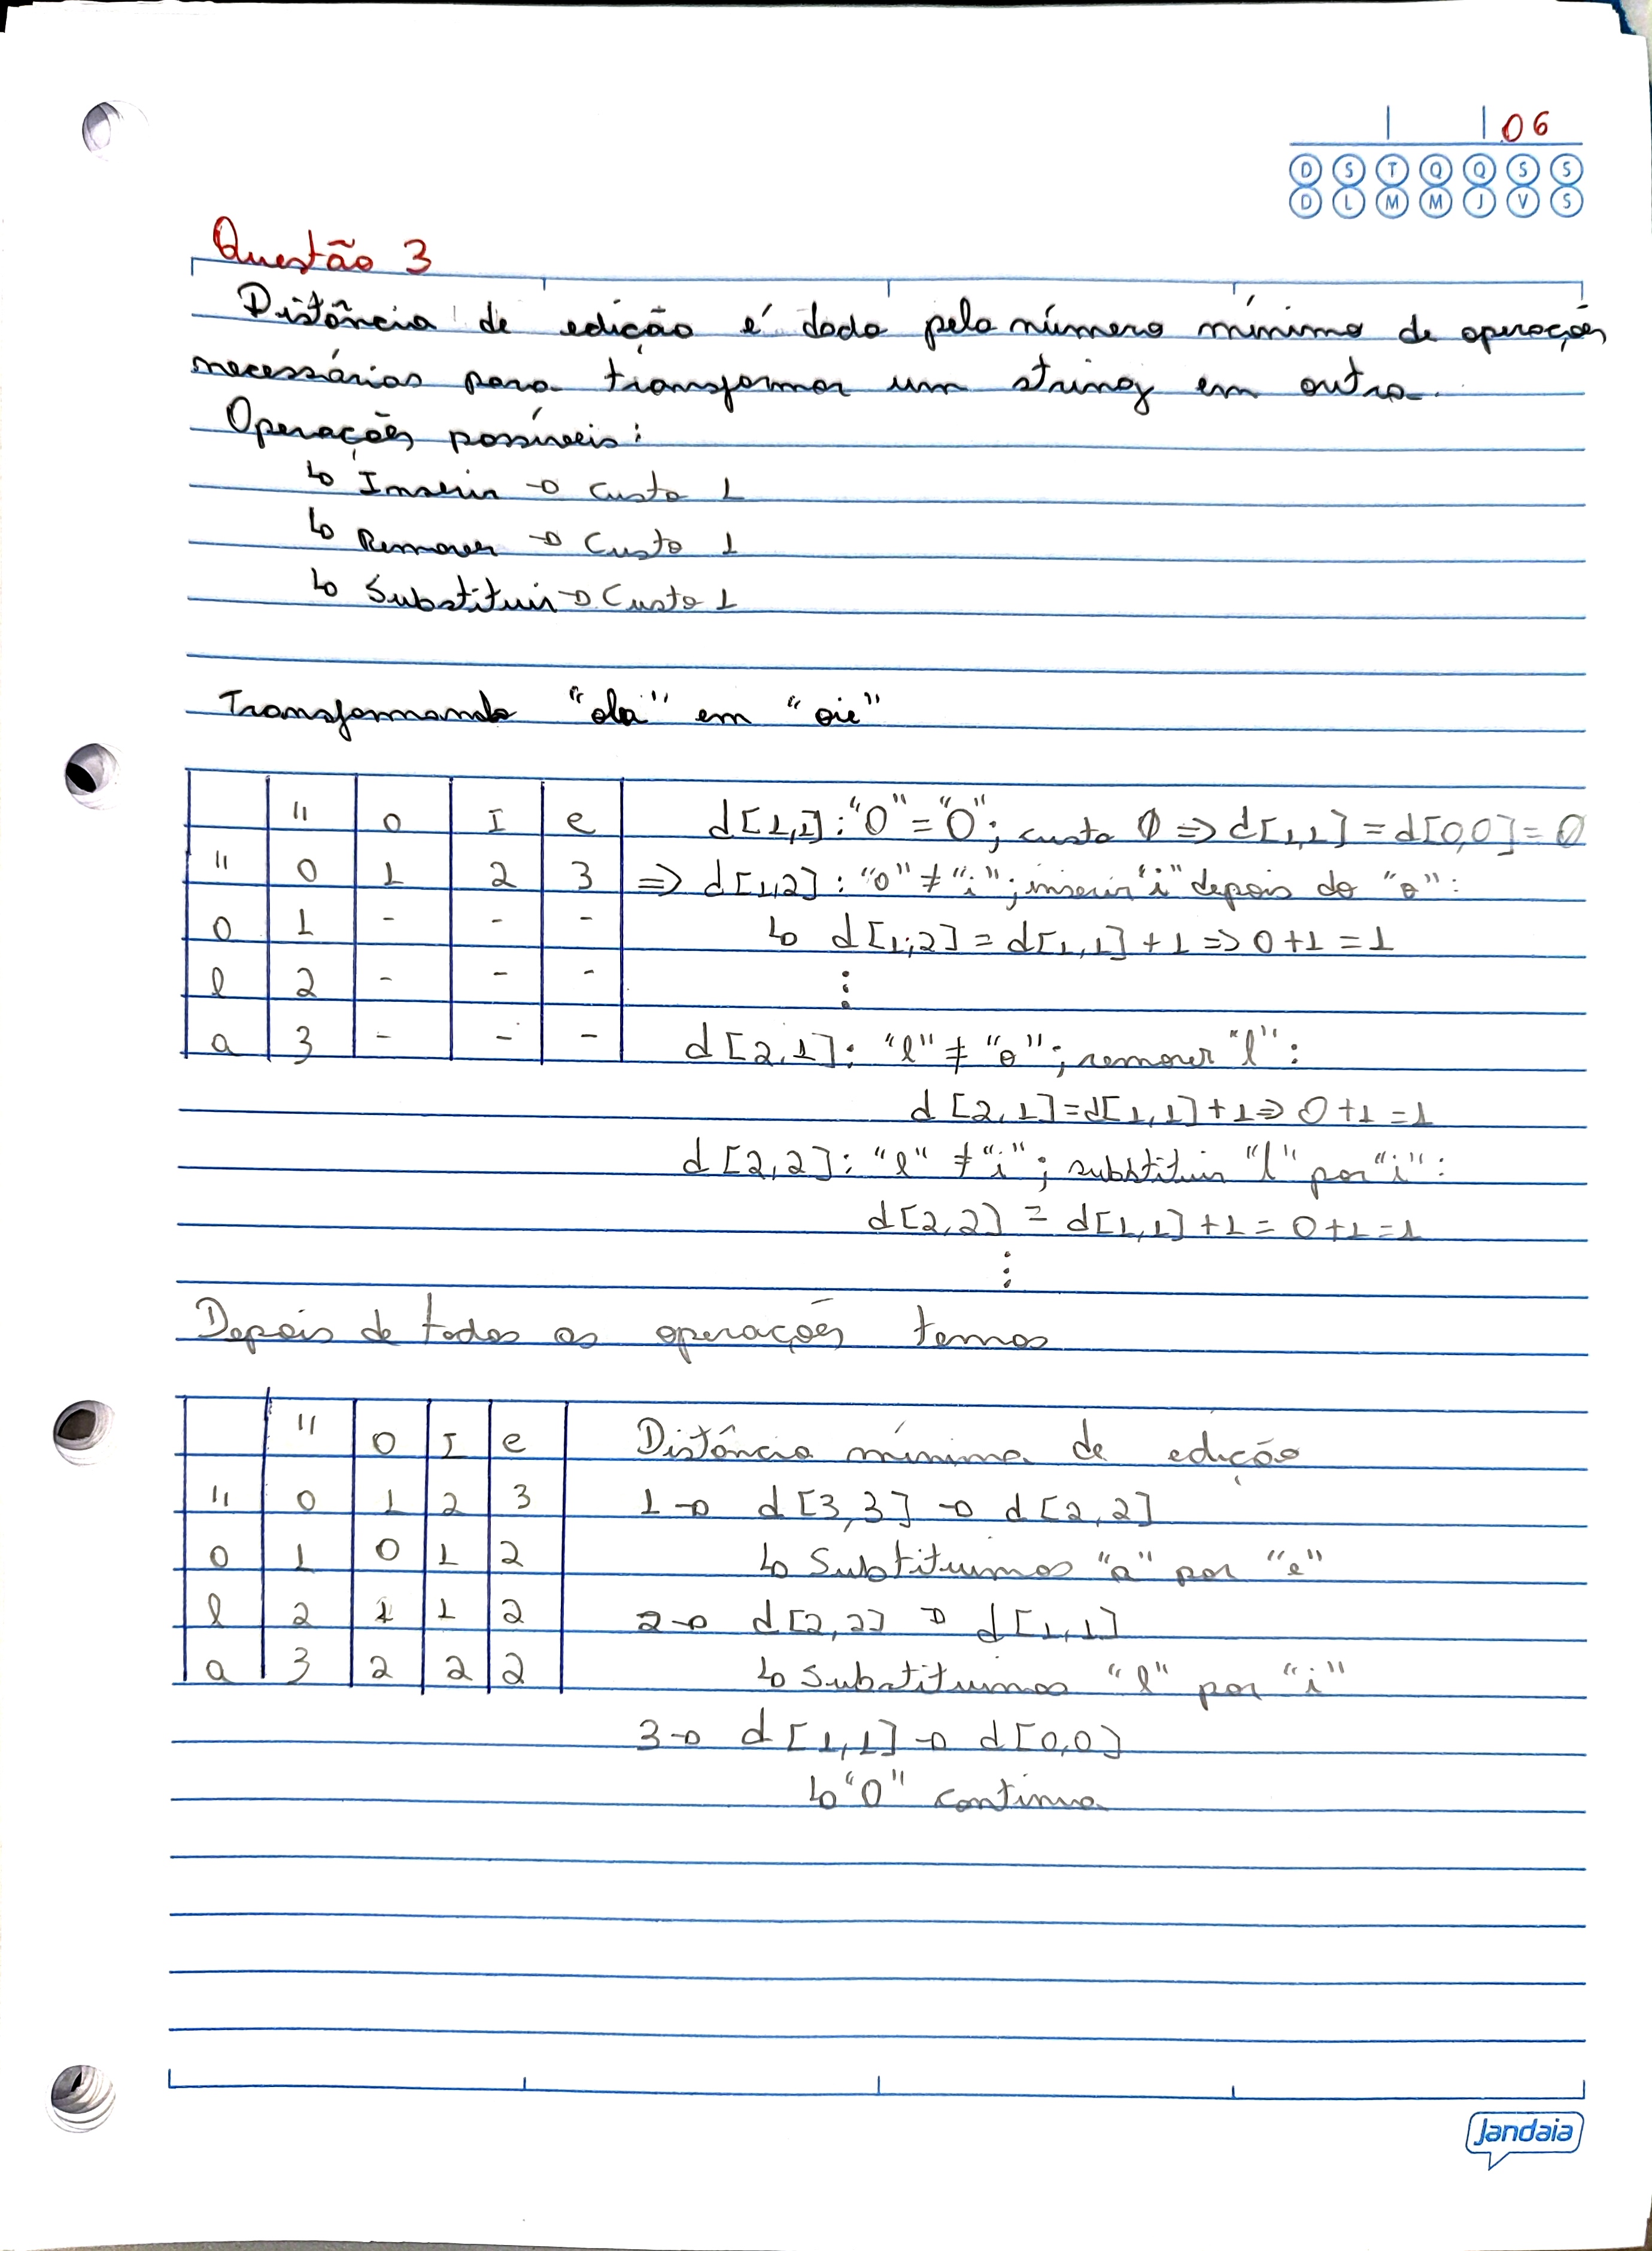 06
D S T Q Q S S
D L M M J V S
Questão 3
Distância de edição é dado pelo número mínimo de operações
necessárias para transformar um string em outro.
Operações possíveis:
↳ Inserir → Custo 1
↳ Remover → Custo 1
↳ Substituir → Custo 1
Transformando "ola" em "oie"
" o I e
" 0 1 2 3
o 1 - - -
l 2 - - -
a 3 - - -
d[1,1]: "O" = "O"; custo 0 => d[1,1] = d[0,0] = 0
=> d[1,2]: "o" ≠ "i"; inserir "i" depois do "o":
↳ d[1,2] = d[1,1] + 1 => 0+1 = 1
⋮
d[2,1]: "l" ≠ "o"; remover "l":
d[2,1] = d[1,1] + 1 => 0+1 = 1
d[2,2]: "l" ≠ "i"; substituir "l" por "i":
d[2,2] = d[1,1] + 1 = 0+1 = 1
⋮
Depois de todas as operações temos
" o I e
" 0 1 2 3
o 1 0 1 2
l 2 1 1 2
a 3 2 2 2
Distância mínima de edição
1 → d[3,3] → d[2,2]
↳ Substituimos "a" por "e"
2 → d[2,2] → d[1,1]
↳ Substituimos "l" por "i"
3 → d[1,1] → d[0,0]
↳ "O" continua
Jandaia